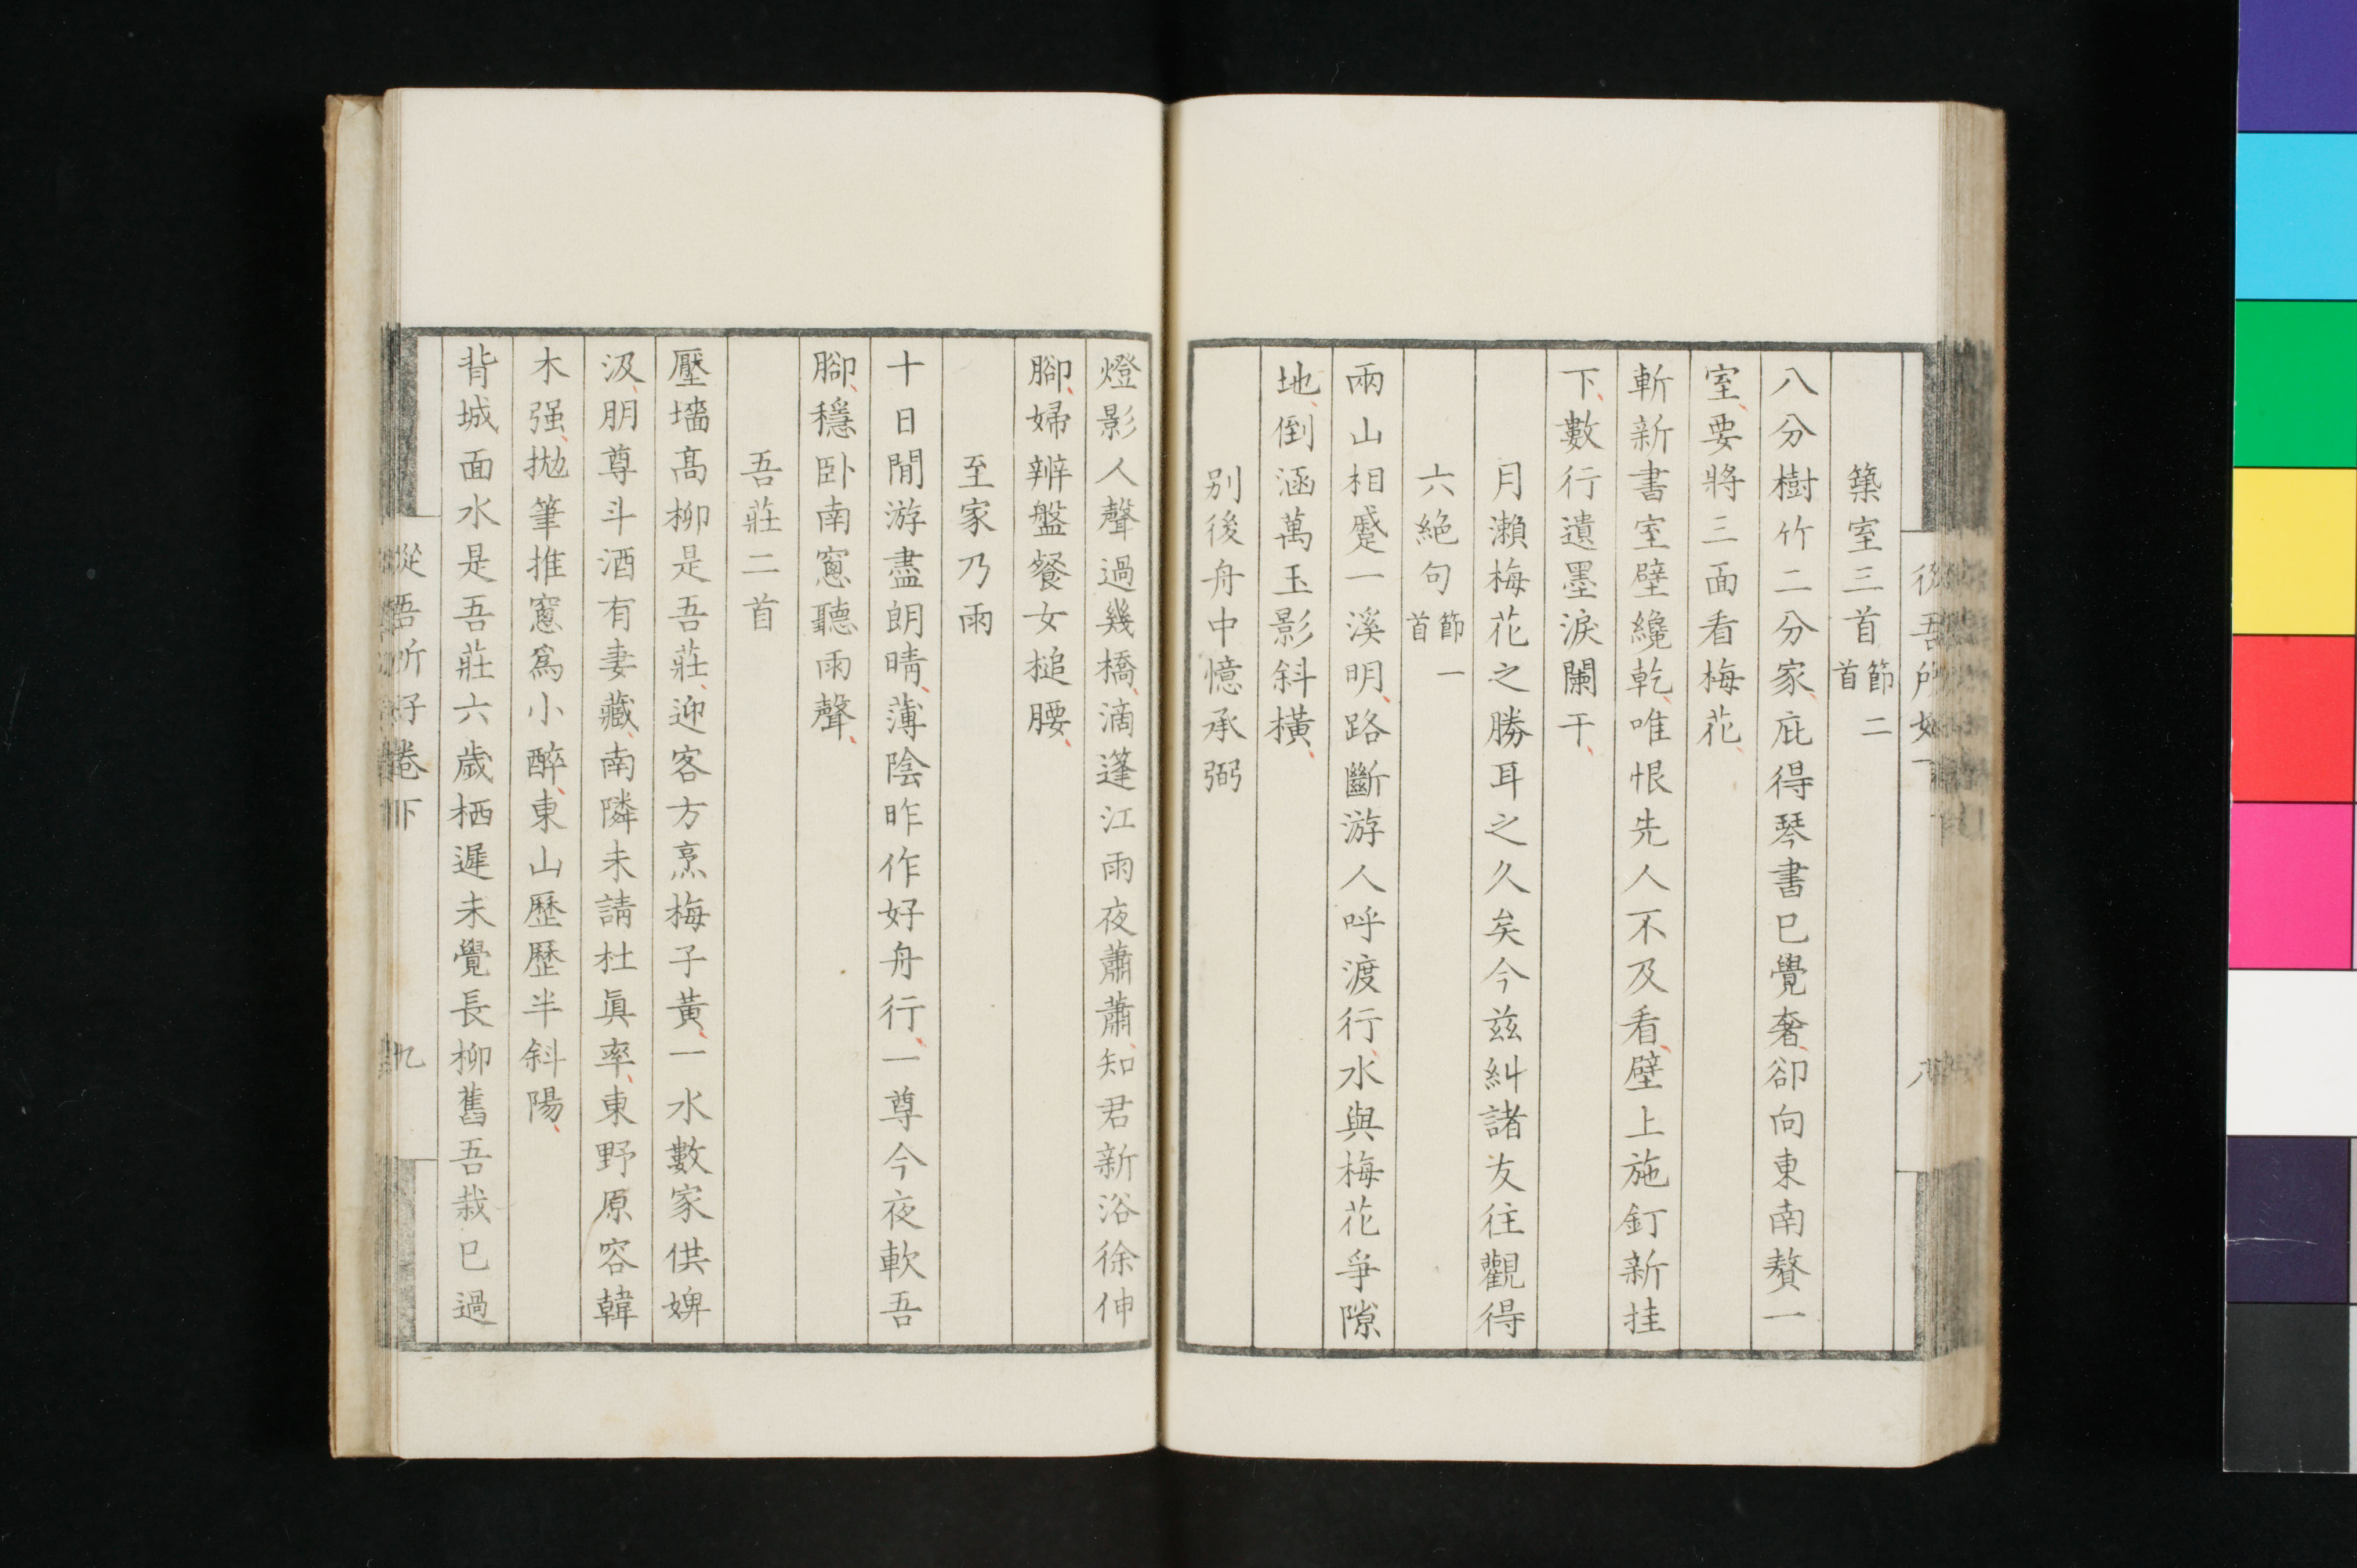 築室三首節二首
八分樹竹二分家庇得琴書已覺奢卻向東南贅一
室要將三面看梅花
斬新書室壁纔乾唯恨先人不及看壁上施釘新挂
下數行遺墨淚闌干
月瀨梅花之勝耳之久矣今茲糾諸友往觀得
六絶句節一首
兩山相蹙一溪明路斷游人呼渡行水與梅花爭隙
地倒涵萬玉影斜橫
別後舟中憶承弼
燈影人聲過幾橋滴篷江雨夜蕭蕭知君新浴徐伸
腳婦辨盤餐女搥腰
至家乃雨
十日閒游盡朗晴薄陰昨作好舟行一尊今夜軟吾
腳穩臥南窻聽雨聲
吾莊二首
壓墻髙柳是吾莊迎客方烹梅子黃一水數家供婢
汲朋尊斗酒有妻藏南隣未請杜眞率東野原容韓
木强拋筆推窻爲小醉東山歷歷半斜陽
背城面水是吾莊六歲栖遲未覺長柳舊吾栽已過
從吾所好卷下
九